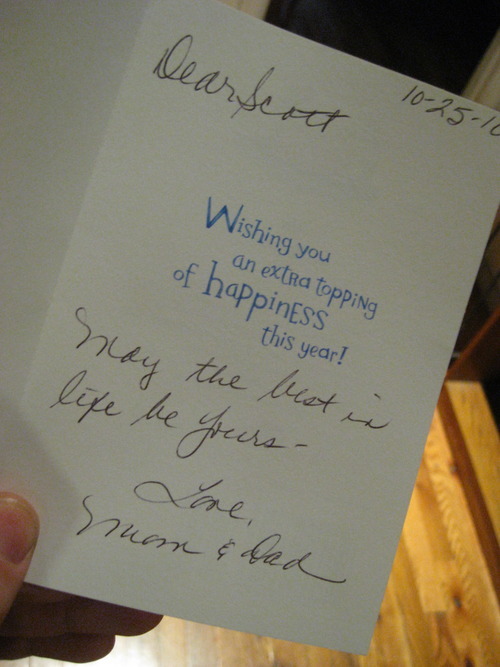 Dear Scott
10-25-10
Wishing you
an extra topping
of happiness
this year!
May the best in
life be yours-
Love,
Mom & Dad